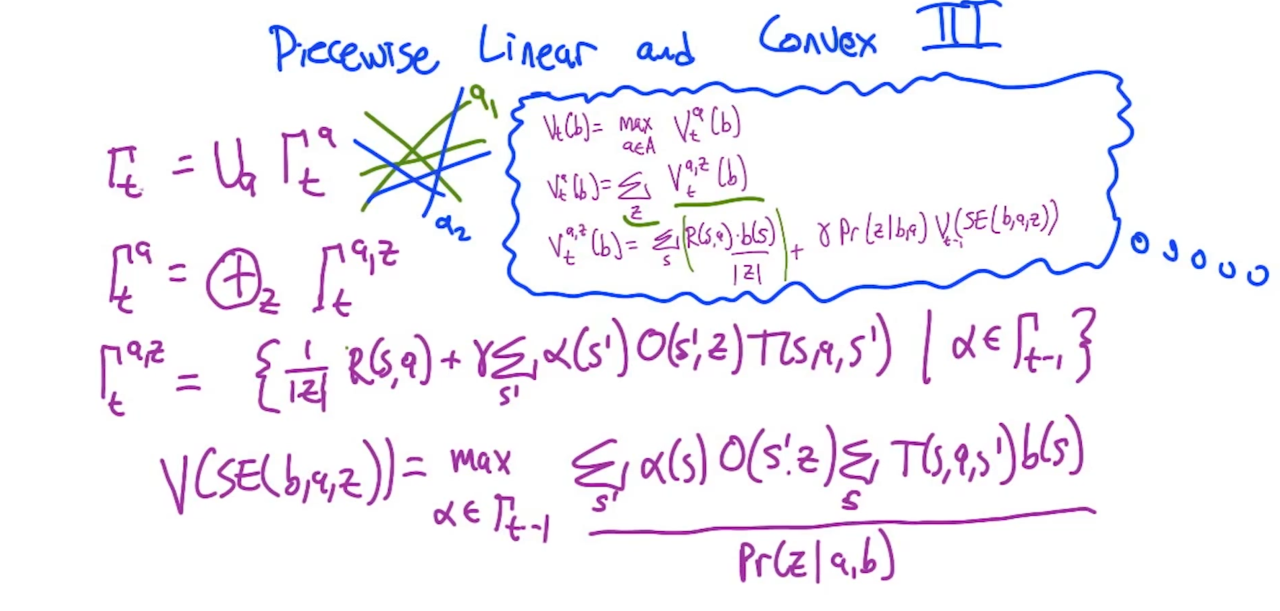 Piecewise Linear and Convex III
a₁
a₂
V_t(b) = max_{a∈A} V_t^a(b)
V_t^a(b) = Σ_z V_t^{a,z}(b)
V_t^{a,z}(b) = Σ_s (R(s,a)·b(s) / |z|) + γ Pr(z|b,a) V_{t-1}(SE(b,a,z))
Γ_t = ∪_a Γ_t^a
Γ_t^a = ⊕_z Γ_t^{a,z}
Γ_t^{a,z} = { 1/|z| R(s,a) + γ Σ_{s'} α(s') O(s',z) T(s,a,s') | α ∈ Γ_{t-1} }
V(SE(b,a,z)) = max_{α ∈ Γ_{t-1}} Σ_{s'} α(s) O(s',z) Σ_s T(s,a,s') b(s) / Pr(z|a,b)